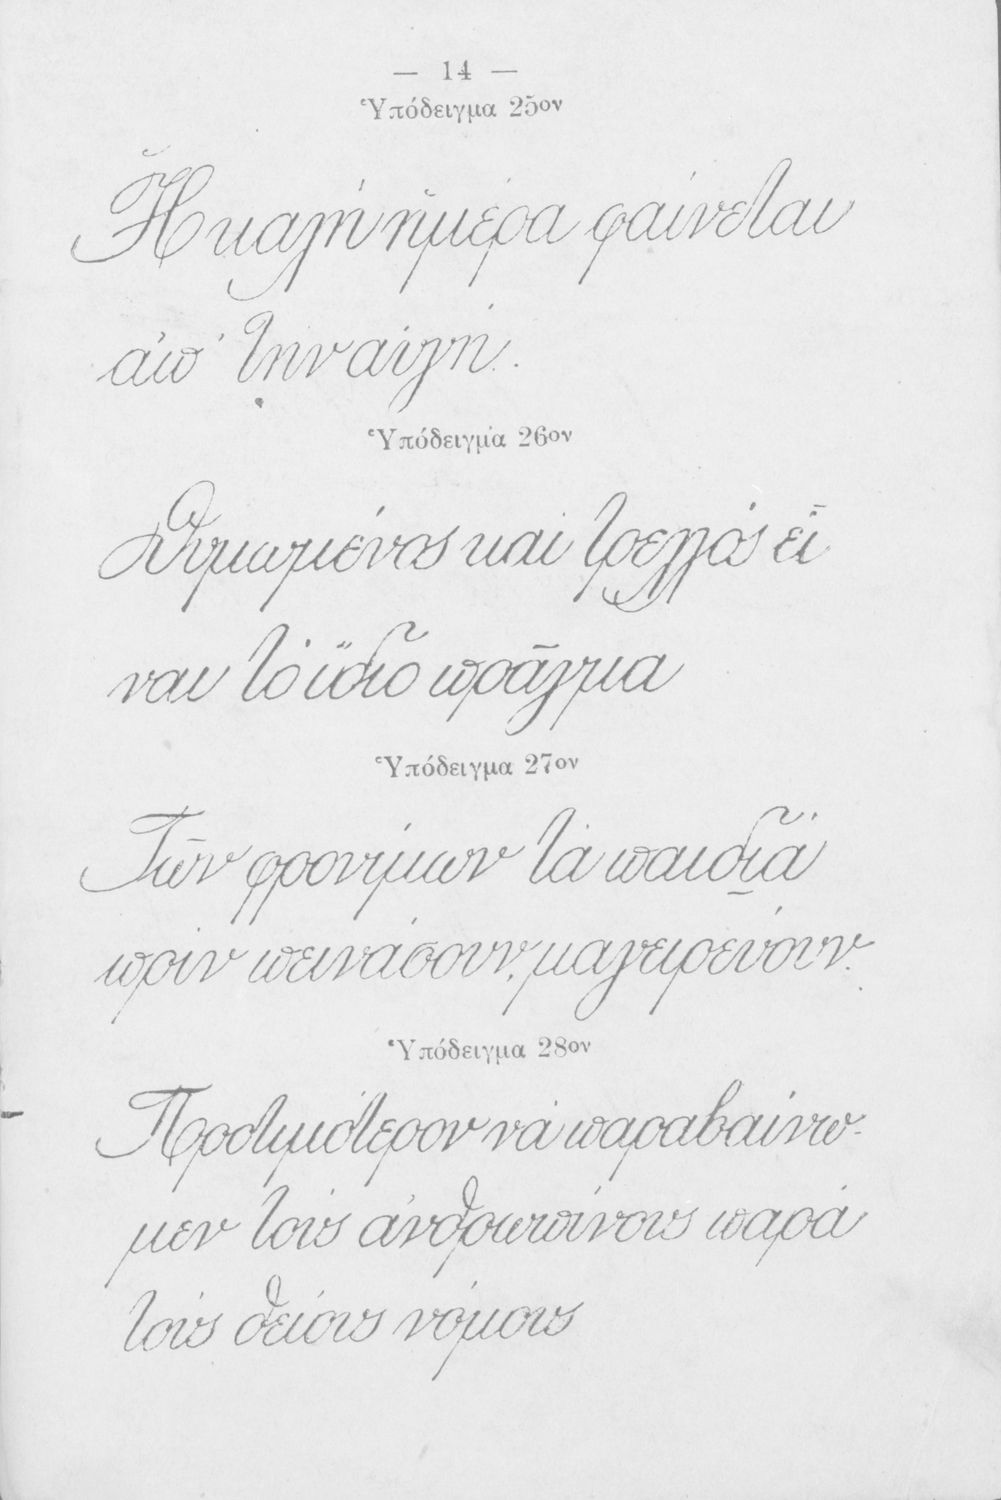 — 14 —
Ὑπόδειγμα 25ον
Ἡ καλὴ ἡμέρα φαίνεται
ἀπ' τὴν αὐγή.
Ὑπόδειγμα 26ον
Θυμωμένος καὶ τρελλὸς εἶ
ναι τὸ ἴδιο πρᾶγμα
Ὑπόδειγμα 27ον
Τῶν φρονίμων τὰ παιδιὰ
πρὶν πεινάσουν, μαγειρεύουν.
Ὑπόδειγμα 28ον
Προτιμότερον νὰ παραβαίνω-
μεν τοὺς ἀνθρωπίνους παρὰ
τοὺς θείους νόμους